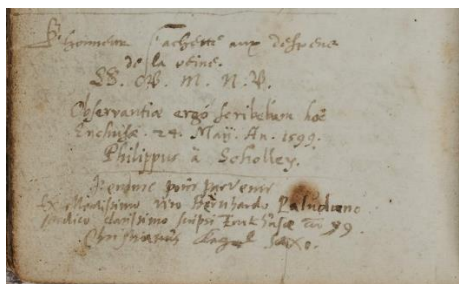 L'honneur s'achepte aux despens
de la veine.
W. M. N. W.
Observantiæ ergo scribebam hoc
Enchusæ. 24. Maij. An. 1599.
Philippus à Scholley.
pour parvenir
Clarissimo viro Bernhardo Paludano
medico clarissimo scripsi Enchusæ 99
Christianus Saxo.